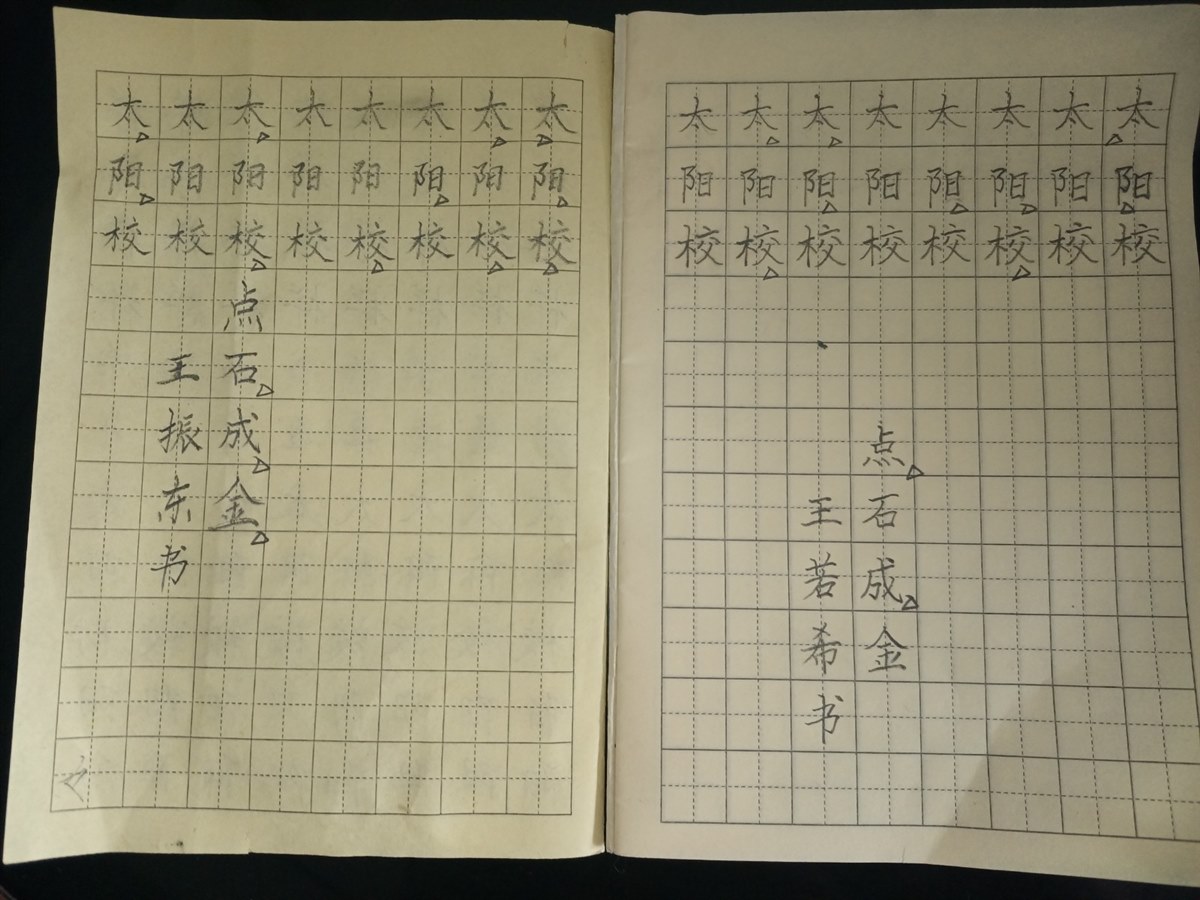 太太太太太太太太
阳阳阳阳阳阳阳阳
校校校校校校校校
点石成金
王振东书
太太太太太太太太
阳阳阳阳阳阳阳阳
校校校校校校校校
点石成金
王若希书